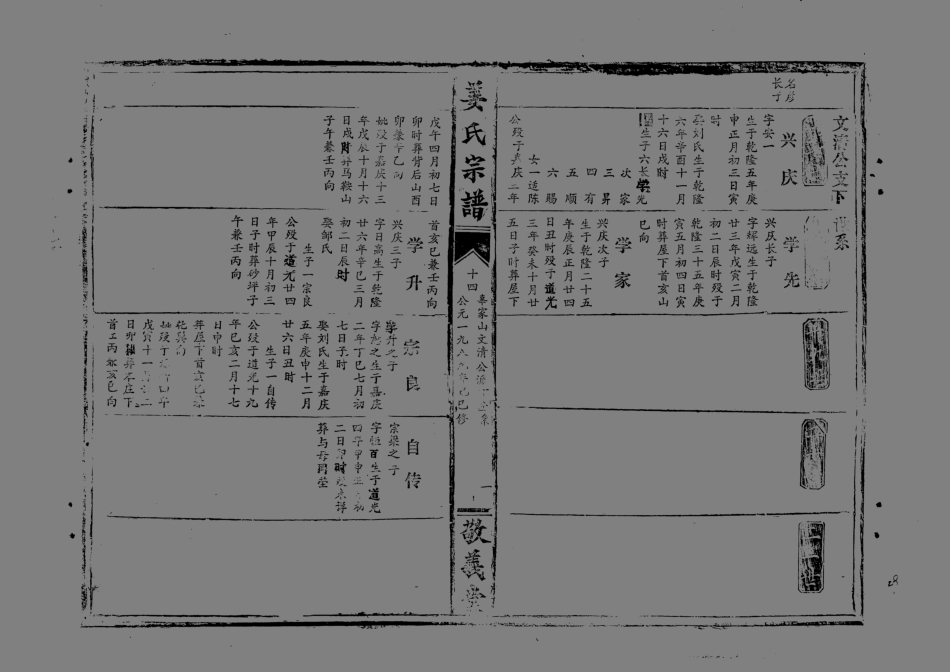 文清公支下
世系
名彦
长子
兴庆
字安一
生于乾隆五年庚
申正月初三日寅
时
娶刘氏生于乾隆
六年辛酉十一月
十六日戌时
生子六长学先
次家
三昇
四有
五顺
六赐
女一适陈
公殁于嘉庆二年
学先
兴庆长子
字辉远生于乾隆
廿三年戊寅二月
初二日辰时殁于
乾隆三十五年庚
寅五月初四日寅
时葬屋下首亥山
巳向
学家
兴庆次子
生于乾隆二十五
年庚辰正月廿四
日丑时殁于道光
三年癸未十月廿
五日子时葬屋下
姜氏宗譜
十四
辜家山文清公派下世系
公元一九八九年己巳修
敬義堂
戊午四月初七日
卯时葬背后山酉
卯兼辛乙向
妣殁于嘉庆十三
年戊辰十月十六
日戌时葬马鞍山
子午兼壬丙向
首亥巳兼壬丙向
学升
兴庆三子
字日高生于乾隆
廿六年辛巳三月
初二日辰时
娶邹氏
生子一宗良
公殁于道光廿四
年甲辰十月初三
日子时葬砂坪子
午兼壬丙向
宗良
学升之子
二年丁巳七月初
七日子时
娶刘氏生于嘉庆
五年庚申十二月
廿六日丑时
生子一自传
公殁于道光十九
年己亥二月十七
日申时
自传
宗梁之子
字恒百生于道光
葬与母同茔
28